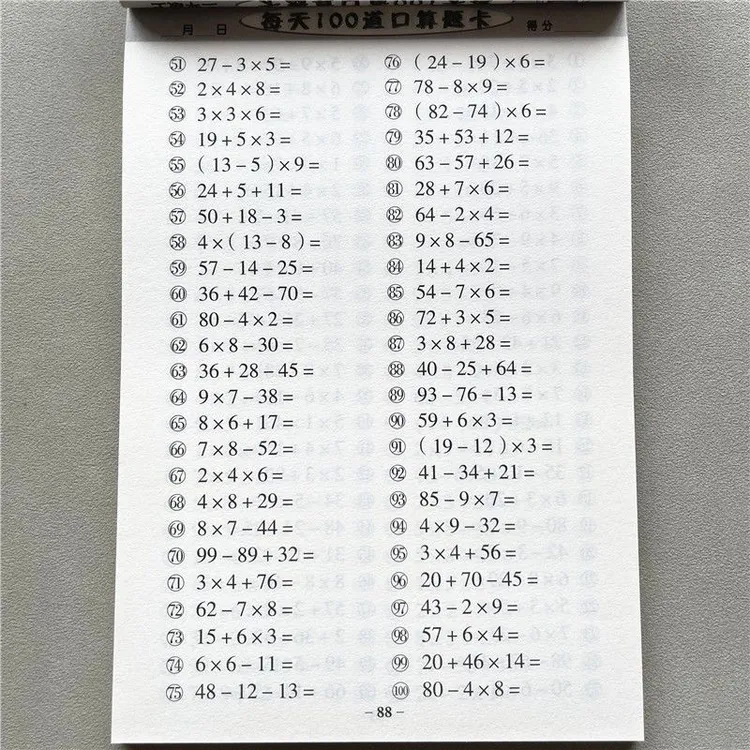 每天100道口算题卡
月 日 得分
51 27-3×5=
52 2×4×8=
53 3×3×6=
54 19+5×3=
55 (13-5)×9=
56 24+5+11=
57 50+18-3=
58 4×(13-8)=
59 57-14-25=
60 36+42-70=
61 80-4×2=
62 6×8-30=
63 36+28-45=
64 9×7-38=
65 8×6+17=
66 7×8-52=
67 2×4×6=
68 4×8+29=
69 8×7-44=
70 99-89+32=
71 3×4+76=
72 62-7×8=
73 15+6×3=
74 6×6-11=
75 48-12-13=
76 (24-19)×6=
77 78-8×9=
78 (82-74)×6=
79 35+53+12=
80 63-57+26=
81 28+7×6=
82 64-2×4=
83 9×8-65=
84 14+4×2=
85 54-7×6=
86 72+3×5=
87 3×8+28=
88 40-25+64=
89 93-76-13=
90 59+6×3=
91 (19-12)×3=
92 41-34+21=
93 85-9×7=
94 4×9-32=
95 3×4+56=
96 20+70-45=
97 43-2×9=
98 57+6×4=
99 20+46×14=
100 80-4×8=
-88-